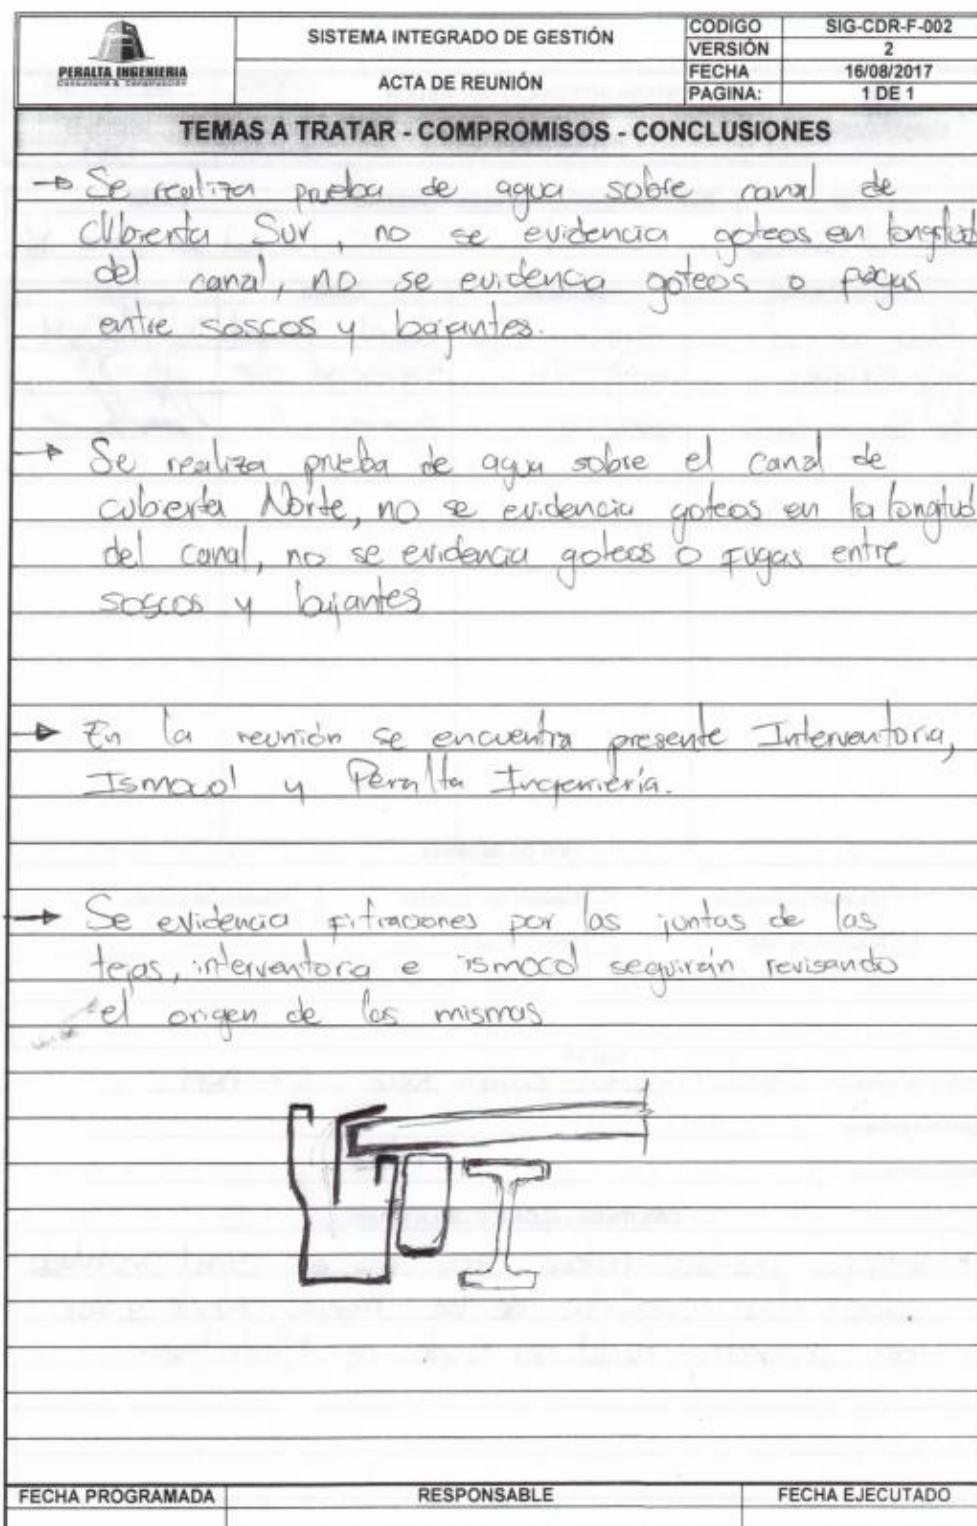 PERALTA INGENIERIA
SISTEMA INTEGRADO DE GESTIÓN
CODIGO SIG-CDR-F-002
VERSIÓN 2
ACTA DE REUNIÓN
FECHA 16/08/2017
PAGINA: 1 DE 1
TEMAS A TRATAR - COMPROMISOS - CONCLUSIONES
→ Se realiza prueba de agua sobre canal de
cubierta Sur, no se evidencia goteos en longitud
del canal, no se evidencia goteos o fugas
entre soscos y bajantes.
→ Se realiza prueba de agua sobre el canal de
cubierta Norte, no se evidencia goteos en la longitud
del canal, no se evidencia goteos o fugas entre
soscos y bajantes
→ En la reunión se encuentra presente Interventoria,
Ismocol y Peralta Ingeniería.
→ Se evidencia fitraciones por las juntas de las
tejas, interventoria e ismocol seguirán revisando
el origen de las mismas
FECHA PROGRAMADA RESPONSABLE FECHA EJECUTADO